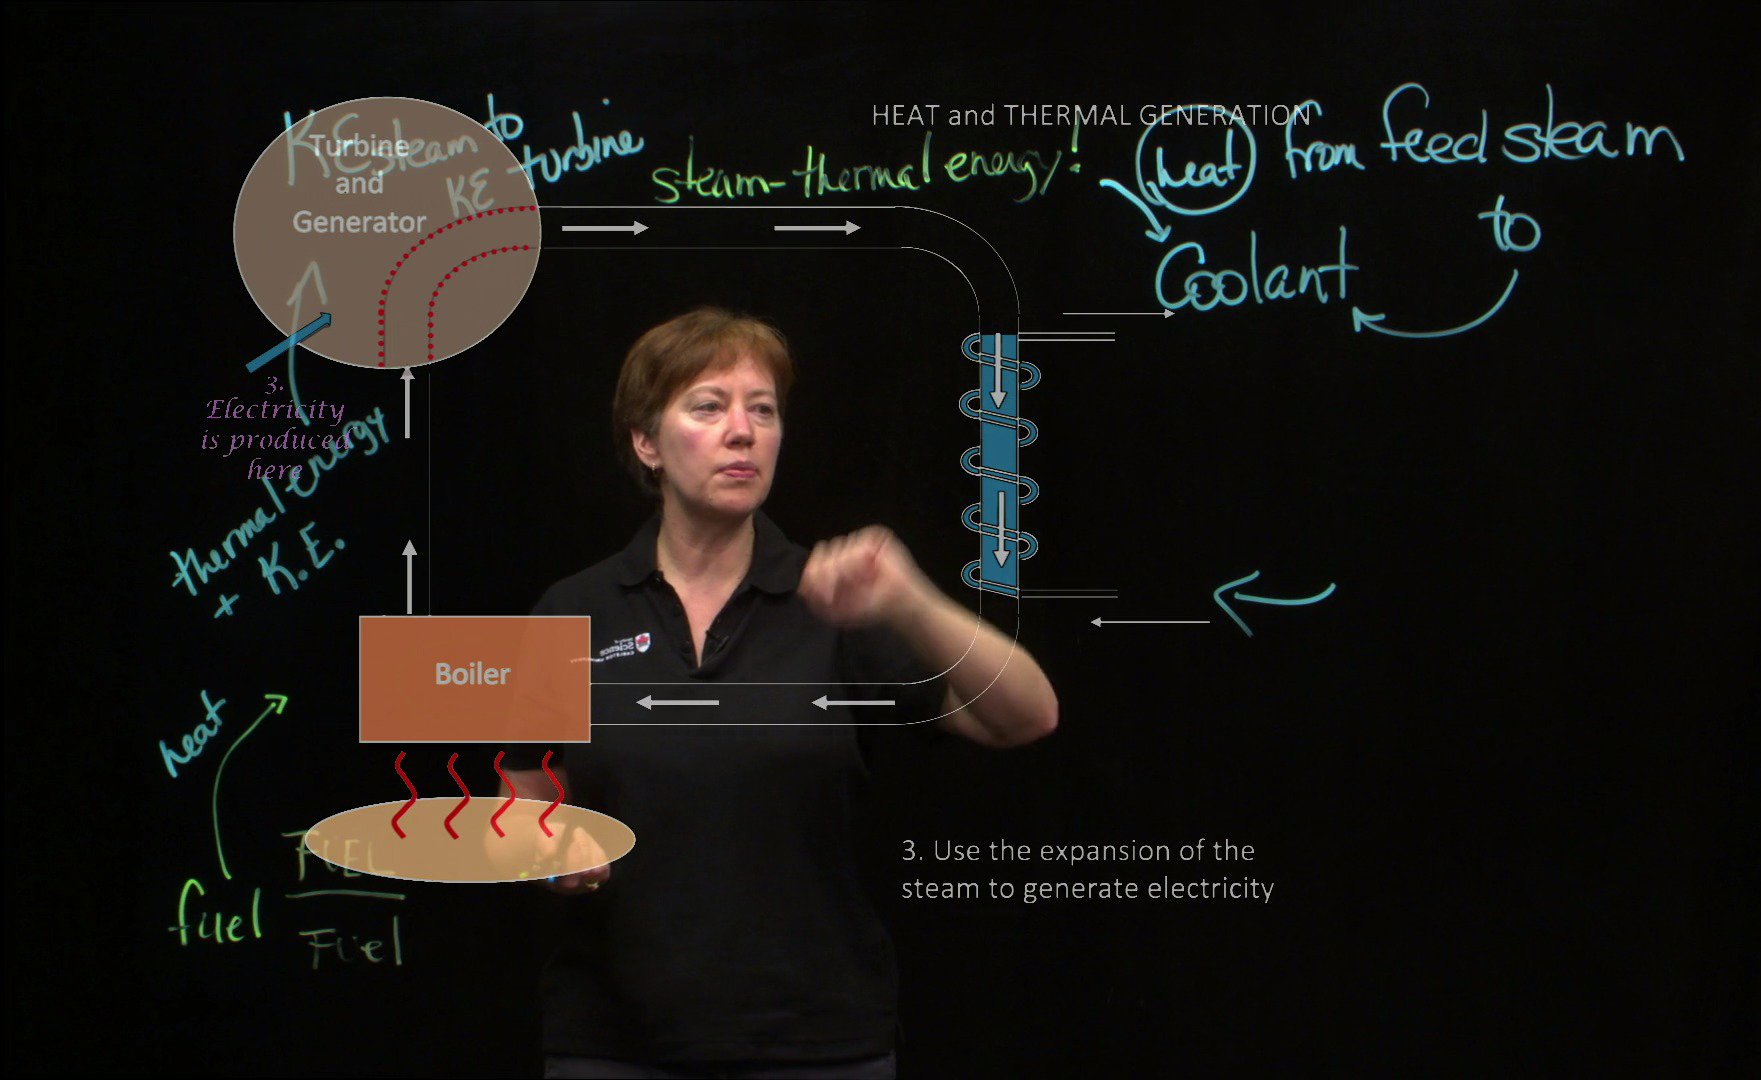 HEAT and THERMAL GENERATION
KE steam to
KE turbine
Turbine
and
Generator
steam-thermal energy!
heat from feed steam
to
Coolant
3.
Electricity
is produced
here
thermal energy
+ K.E.
Boiler
heat
FUEL
fuel
Fuel
3. Use the expansion of the
steam to generate electricity